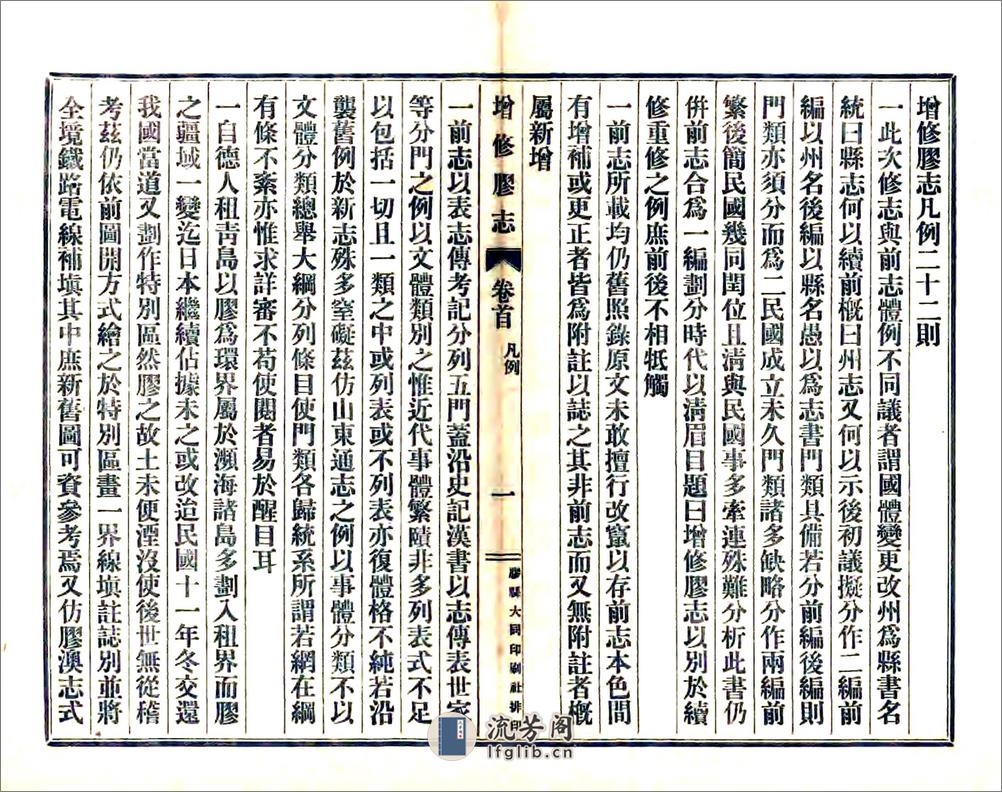 增修膠志凡例二十二則
一此次修志與前志體例不同議者謂國體變更改州爲縣書名
統曰縣志何以續前概曰州志又何以示後初議擬分作二編前
編以州名後編以縣名愚以爲志書門類具備若分前編後編則
門類亦須分而爲二民國成立未久門類諸多缺略分作兩編前
繁後簡民國幾同閏位且淸與民國事多牽連殊難分析此書仍
倂前志合爲一編劃分時代以淸眉目題曰增修膠志以別於續
修重修之例庶前後不相牴觸
一前志所載均仍舊照錄原文未敢擅行改竄以存前志本色間
有增補或更正者皆爲附註以誌之其非前志而又無附註者概
屬新增
增修膠志 卷首 凡例 一 膠縣大同印刷社排印
一前志以表志傳考記分列五門蓋沿史記漢書以志傳表世家
等分門之例以文體類別之惟近代事體繁賾非多列表式不足
以包括一切且一類之中或列表或不列表亦復體格不純若沿
襲舊例於新志殊多窒礙茲仿山東通志之例以事體分類不以
文體分類總舉大綱分列條目使門類各歸統系所謂若網在綱
有條不紊亦惟求詳審不苟使閱者易於醒目耳
一自德人租靑島以膠爲環界屬於瀕海諸島多劃入租界而膠
之疆域一變迄日本繼續佔據未之或改迨民國十一年冬交還
我國當道又劃作特別區然膠之故土未便湮沒使後世無從稽
考茲仍依前圖開方式繪之於特別區畫一界線塡註誌別並將
全境鐵路電線補塡其中庶新舊圖可資參考焉又仿膠澳志式
流芳阁
lfglib.cn